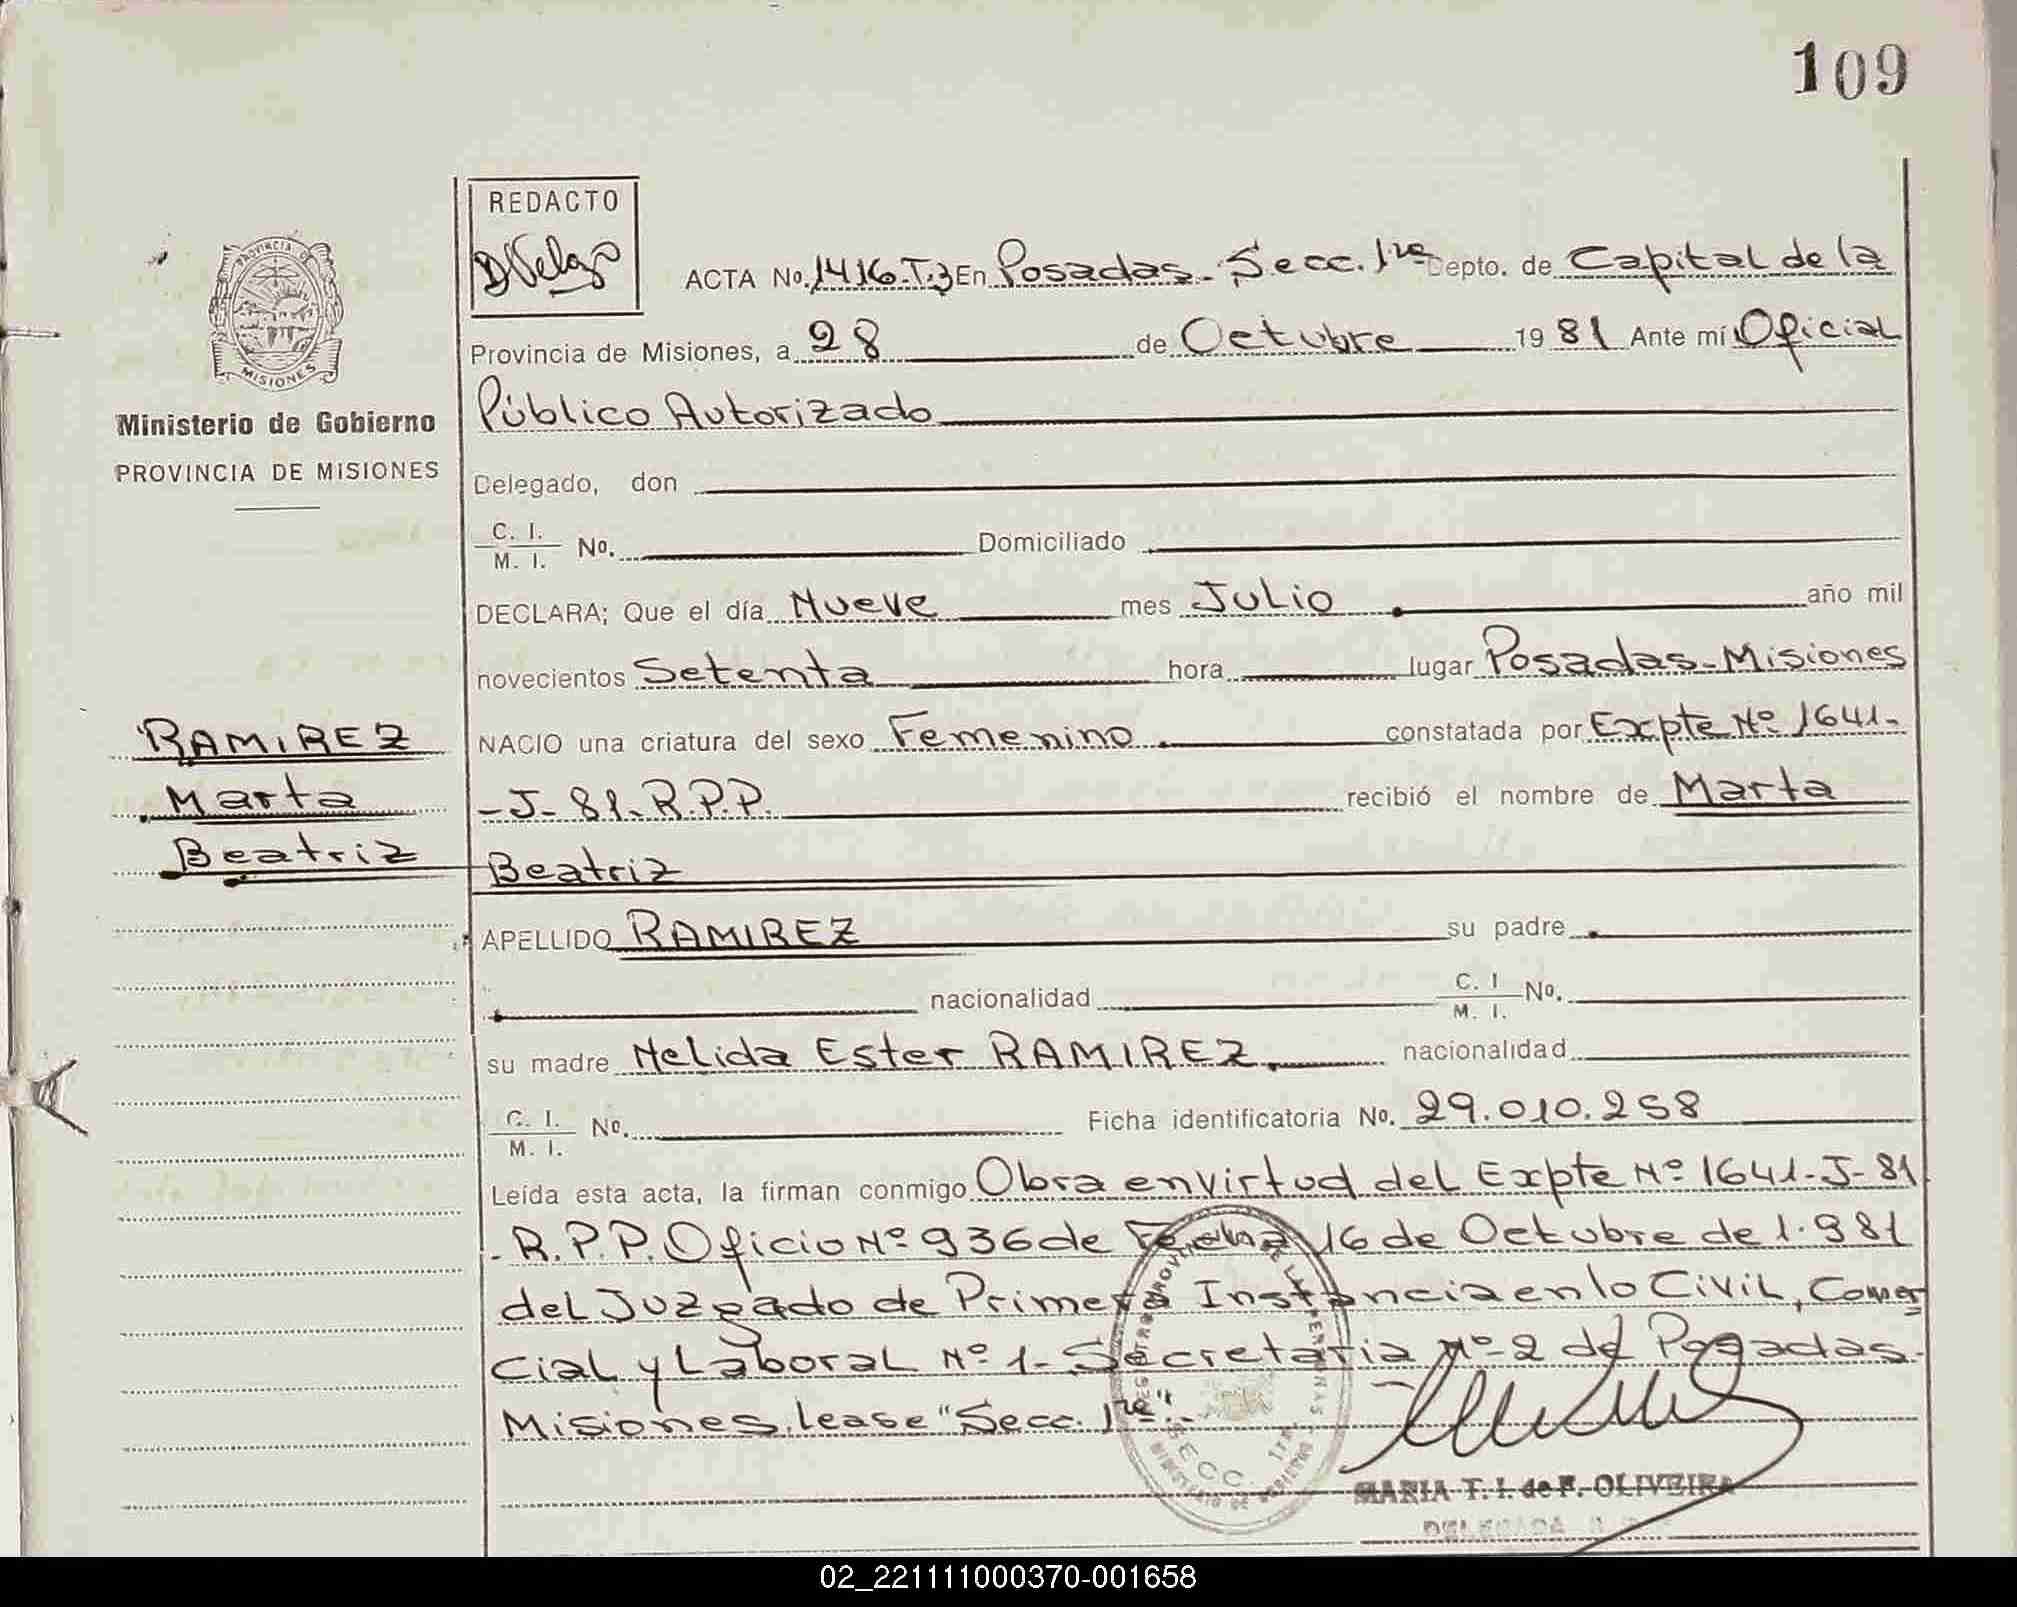 109
REDACTO
PROVINCIA D
MISIONES
Ministerio de Gobierno
PROVINCIA DE MISIONES
ACTA No. 1416.T.3 En Posadas. Secc. 1ra Depto. de Capital de la
Provincia de Misiones, a 28 de Octubre 1981 Ante mí Oficial
Público Autorizado
Delegado, don
C. I.
M. I. No. Domiciliado
DECLARA; Que el día Nueve mes Julio año mil
novecientos Setenta hora lugar Posadas-Misiones
NACIO una criatura del sexo Femenino. constatada por Expte Nº 1641-
-J-81. R.P.P. recibió el nombre de Marta
Beatriz
RAMIREZ
Marta
Beatriz
APELLIDO RAMIREZ su padre
nacionalidad C. I
M. I. No.
su madre Nelida Ester RAMIREZ. nacionalidad
C. I.
M. I. No. Ficha identificatoria No. 29.010.258
Leída esta acta, la firman conmigo Obra en virtud del Expte Nº 1641-J-81
- R.P.P. Oficio Nº 936 de Fecha 16 de Octubre de 1.981
del Juzgado de Primera Instancia en lo Civil, Comer
cial y Laboral Nº 1- Secretaria Nº 2 de Posadas-
Misiones. lease "Secc. 1ra".-
SECC. 1ra
MINISTERIO DE GOBIERNO
MARIA T. I. de F. OLIVEIRA
DELEGADA
02_221111000370-001658